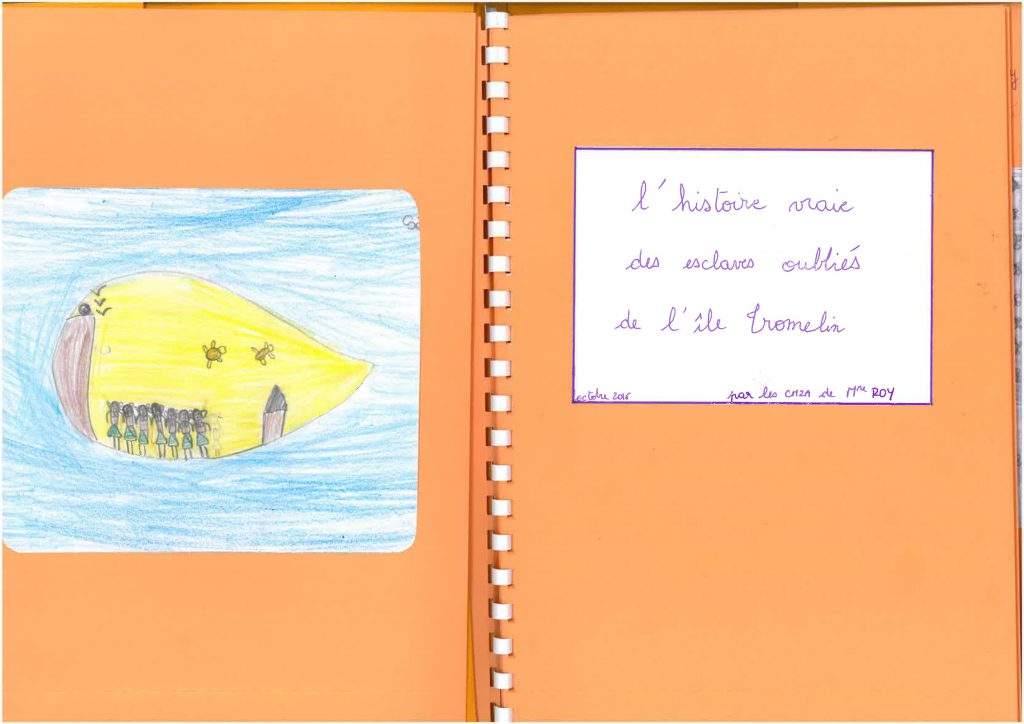 l'histoire vraie
des esclaves oubliés
de l'île Tromelin
octobre 2016
par les CM2A de Mme ROY